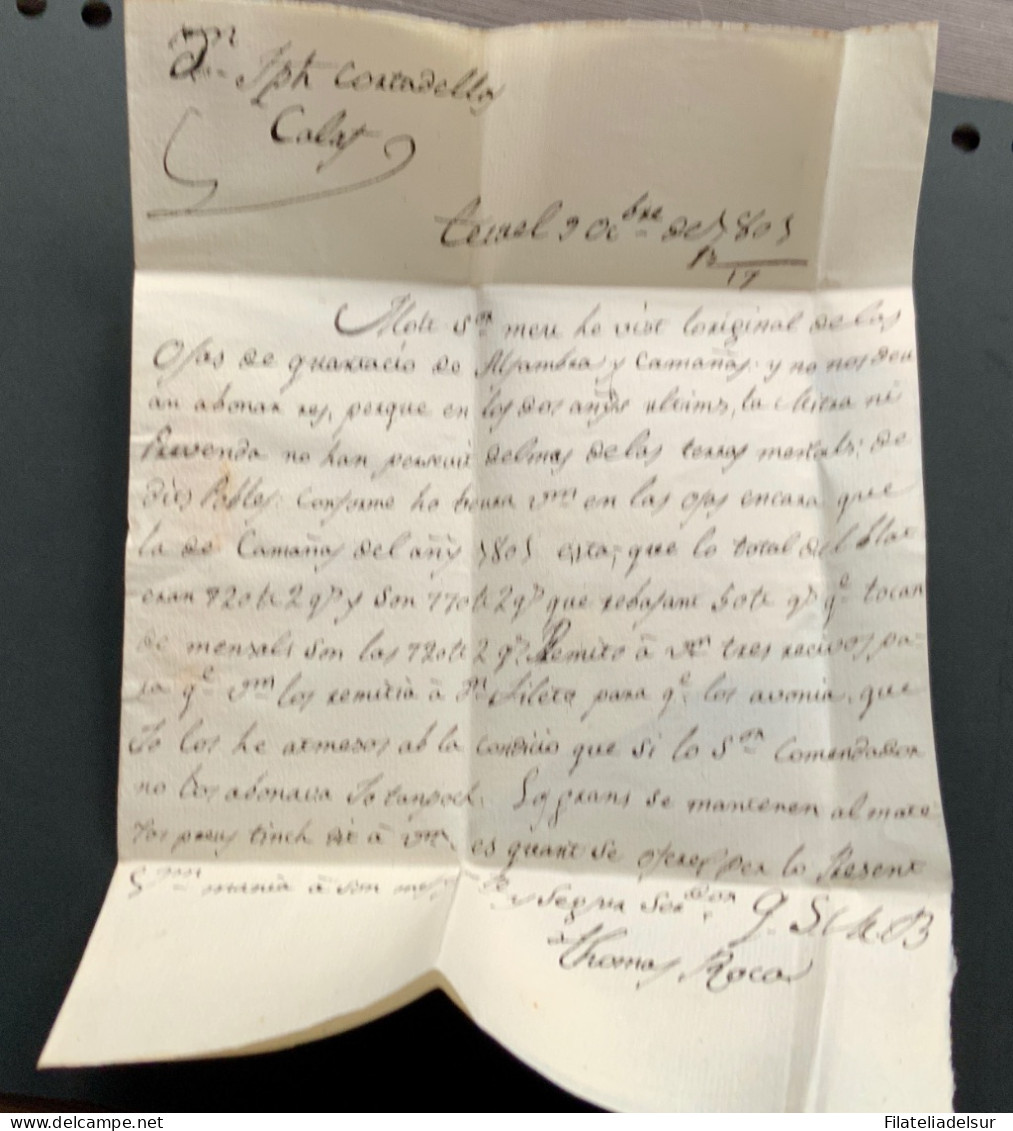 Dn. Jph Cortadellas
Calaf
teruel 9 Obre de 1805
17
Molt Sor. meu he vist loriginal de las
Ofas de quartacio de Alfambra y Camañas y no nos deu
an abonar res, perque en los dos anÿs ultims, la Mitra ni
Prevenda no han persevit delmas de las terras mensals; de
dits Pobles: conforme ho trura Vm en las Ofas encara que
la de Camañas del anÿ 1805 esta, que lo total del blat
eran 720 2 y son 770 2 que rebajant 50 qe. tocan
de mensals son las 720 2 Remito â Vm. tres recivos pa-
ra qe. Vm los remitia â Dn. Fileto para qe. los avonia, que
Jo los he atmesos ab la condicio que si lo Sor. Comendador
no los abonava Jo tanpoch. Los grans se mantenen al mate
los preus tinch dit â Vm. es quant se ofereÿ per lo Present
Vm. mania â son mes y segur Servidor Q. S. M. B
Thomas Roca
Filateliadelsur